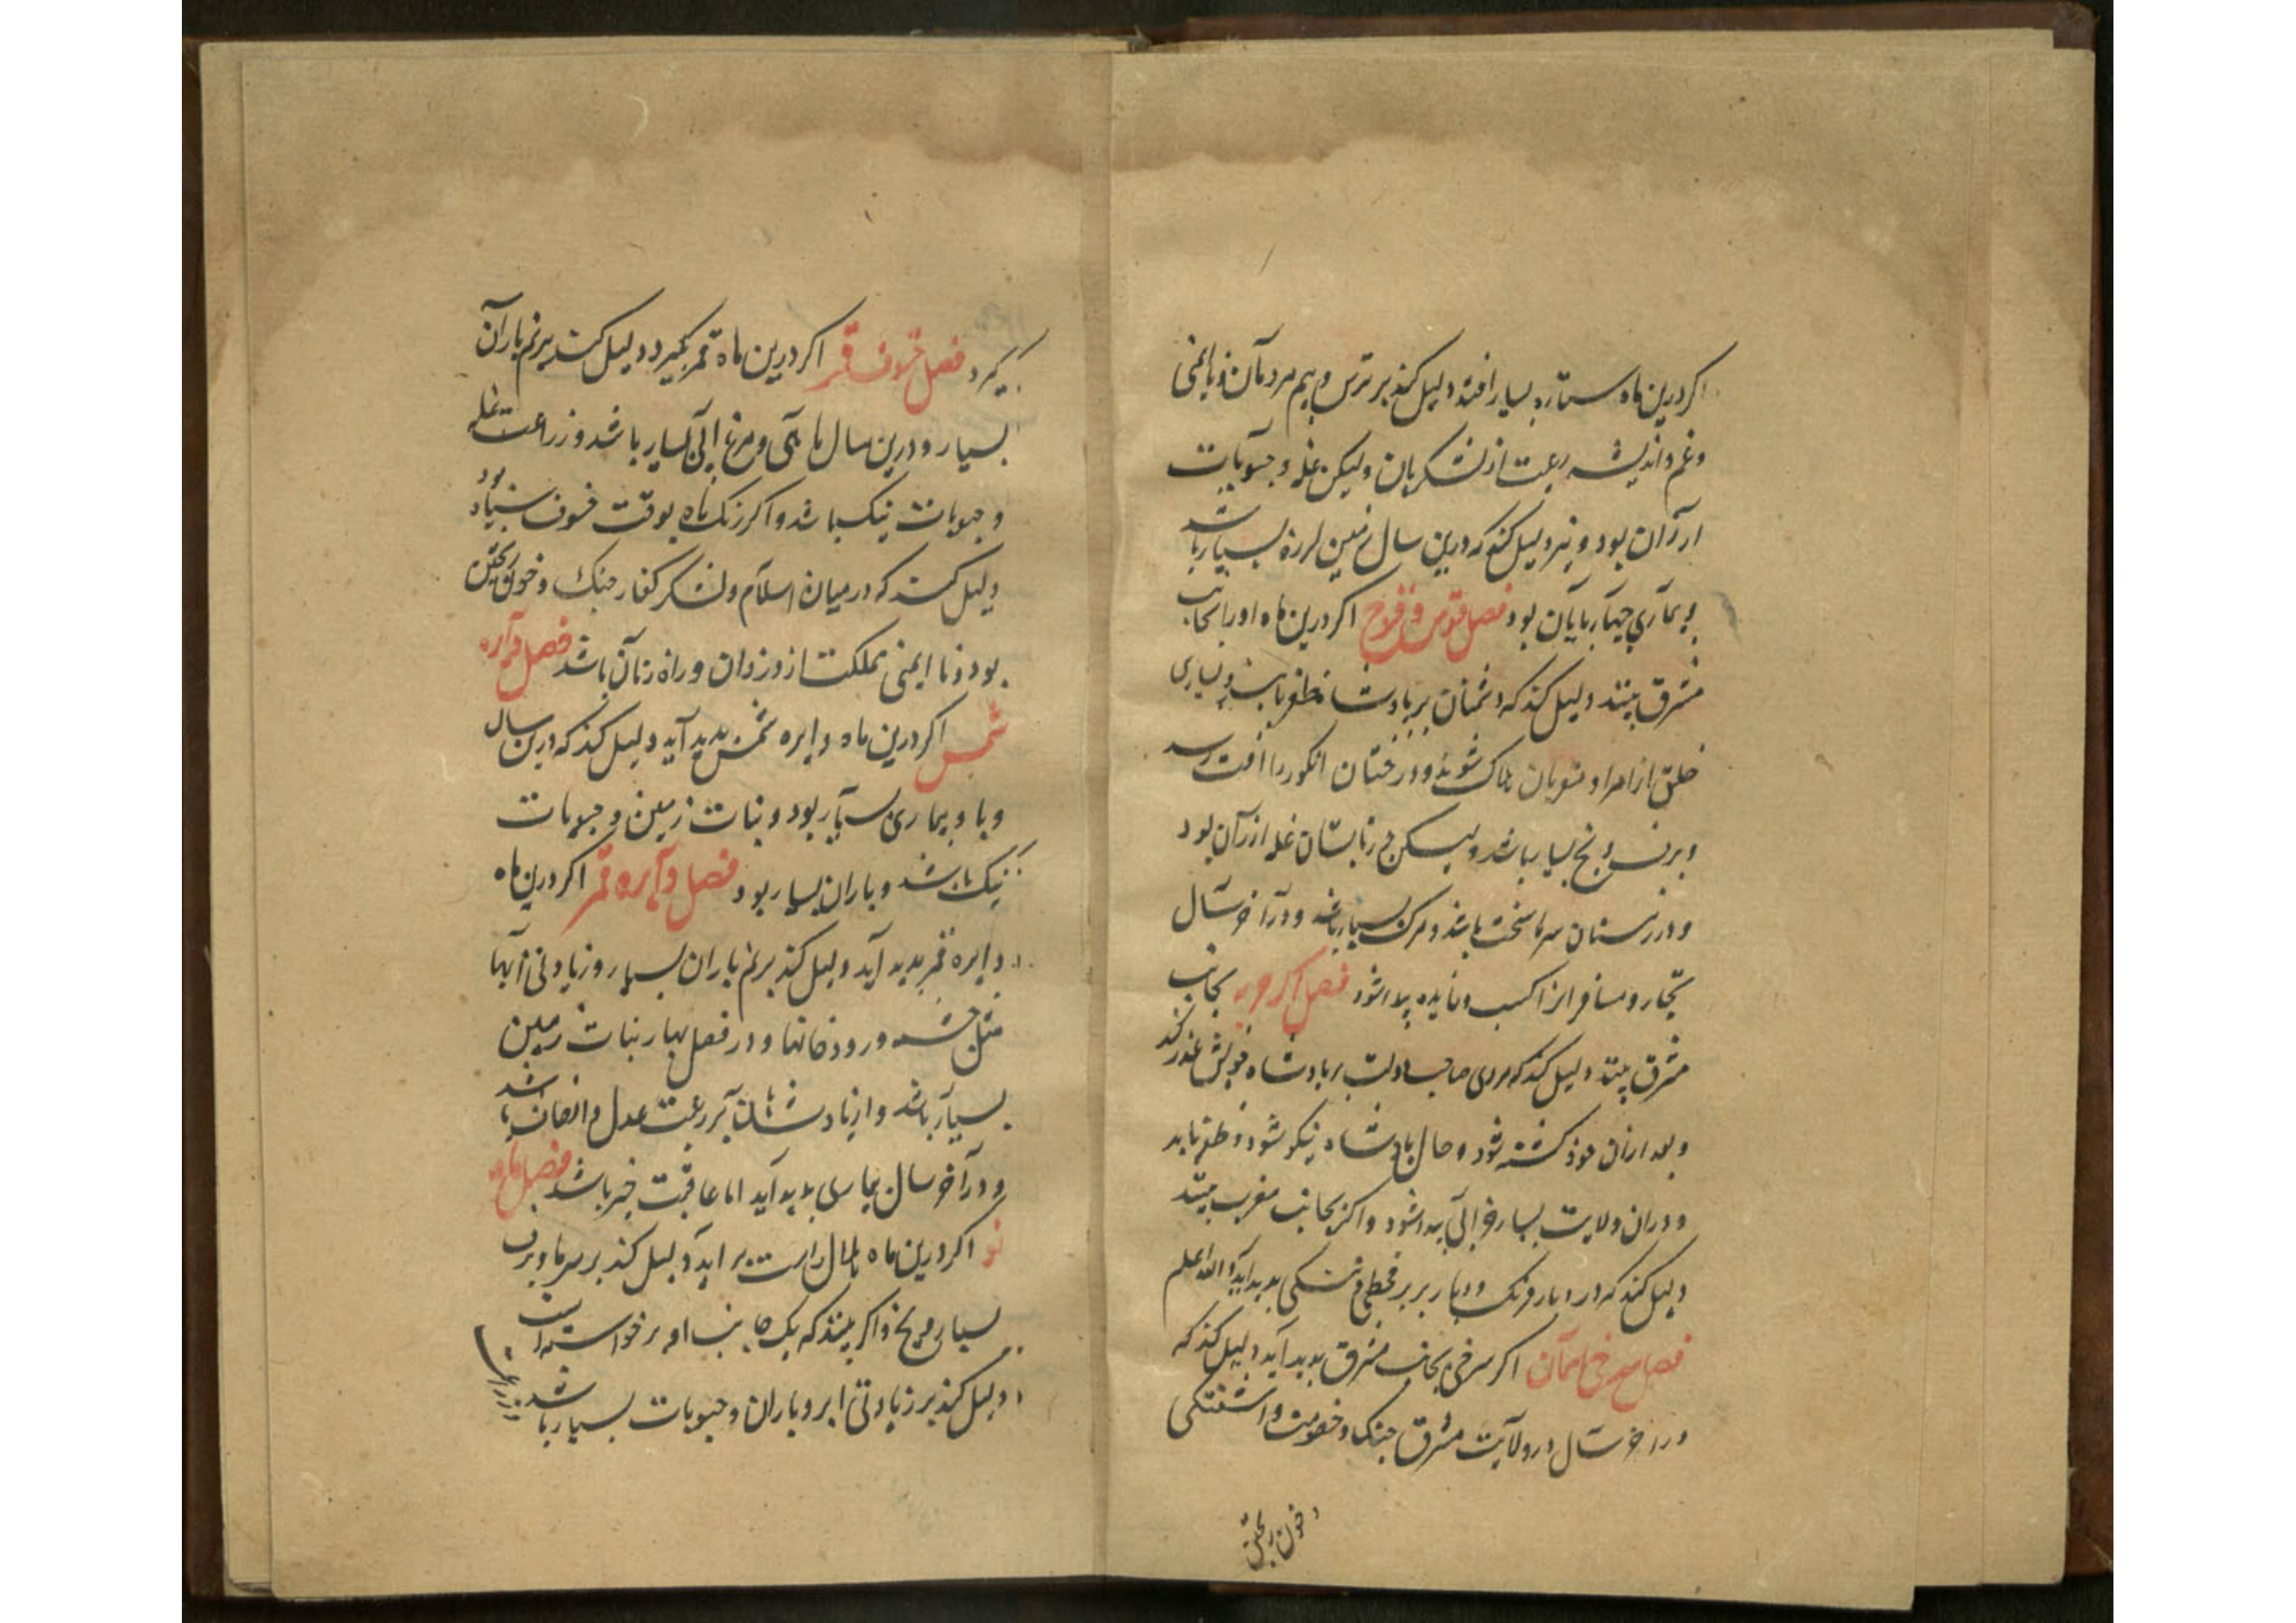 اکر درین ماه ستاره بسیار افتد دلیل کند بر ترس و بیم مردمان و ناایمنی
و غم و اندیشه رعیت از لشکریان ولیکن غله و حبوبات
ارزان بود و نیز دلیل کند که درین سال زمین لرزه بسیار باشد
و بیماری چهارپایان بود فصل قوس و قزح اکر درین ماه او را بجانب
مشرق بینند دلیل کند که دشمنان بر پادشاه ظفر یابند و بسیاری
خلق از امرا و منسوبان هلاک شوند و درختان انکور را افت رسد
و برف و یخ بسیار باشد ولیکن در تابستان غله ارزان بود
و در زمستان سرما سخت باشد و مرک بسیار باشد و در آخر سال
تجار و مسافرانرا کسب و فایده پیدا شود فصل اکر حربه بجانب
مشرق بینند دلیل کند که مردی صاحب دولت بر پادشاه خویش غدر کند
و بعد ازان خود کشته شود و حال پادشاه نیکو شود و ظفر یابد
و دران ولایت بسیار مرغ آبی پیدا شود و اکر بجانب مغرب بینند
دلیل کند که در دیار فرنک و دیار بربر قحطی و تنکی پدید آید والله اعلم
فصل سرخی اسمان اکر سرخی بجانب مشرق پدید آید دلیل کند که
در آخر سال در ولایت مشرق جنک و خصومت و آشفتکی
و خون ریختن
کیرد فصل خسوف قمر اکر درین ماه قمر بکیرد دلیل کند بر نم باران
بسیار و درین سال ماهی و مرغ ابی بسیار باشد و زراعت غله
و حبوبات نیک باشد و اکر رنک ماه بوقت خسوف سیاه بود
دلیل کند که در میان اسلام و لشکر کفار جنک و خون ریختن
بود و نا ایمنی مملکت از دزدان و راه زنان باشد فصل دایره
شمس اکر درین ماه دایره شمس پدید آید دلیل کند که درین سال
وبا و بیماری بسیار بود و نبات زمین و حبوبات
نیک باشد و باران بسیار بود فصل دایره قمر اکر درین ماه
دایره قمر پدید آید دلیل کند بر نم باران بسیار و زیادتی آبها
مثل چشمه و رودخانها و در فصل بهار نبات زمین
بسیار باشد و از پادشاهان بر رعیت عدل و انصاف باشد
و در آخر سال بیماری پدید آید اما عاقبت خیر باشد فصل ماه
نو اکر درین ماه هلال راست بر آید دلیل کند بر سرما و برف
بسیار و یخ و اکر بینند که یک جانب او برخواسته است
دلیل کند بر زیادتی ابر و باران و حبوبات بسیار باشد